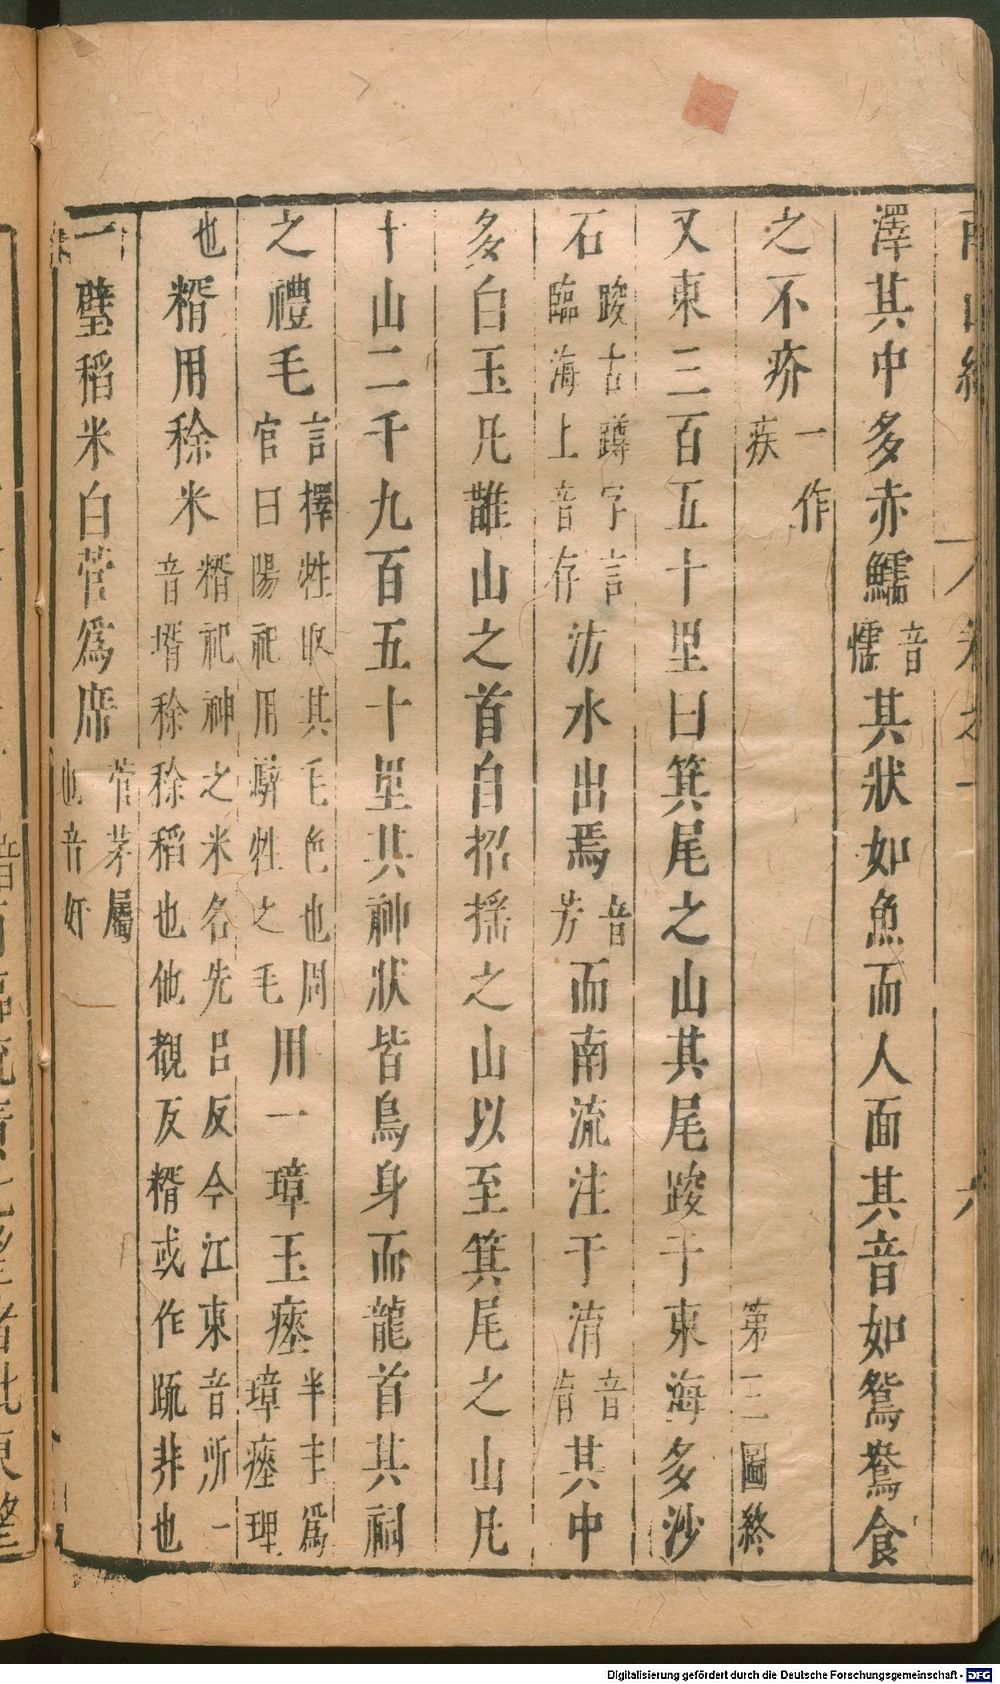 澤其中多赤鱬音懦其狀如魚而人面其音如鴛鴦食
之不疥一作疾 第三圖終
又東三百五十里曰箕尾之山其尾踆于東海多沙
石踆古蹲字言臨海上音存汸水出焉音芳而南流注于淯音育其中
多白玉凡䧿山之首自招搖之山以至箕尾之山凡
十山二千九百五十里其神狀皆鳥身而龍首其祠
之禮毛言擇牲取其毛色也周官曰陽祀用騂牲之毛用一璋玉瘞半圭爲璋瘞埋
也糈用稌米糈祀神之米名先呂反今江東音所一音壻稌稌稻也他覩反糈或作疏非也
一璧稻米白菅爲席菅茅屬也音奸
Digitalisierung gefördert durch die Deutsche Forschungsgemeinschaft - DFG